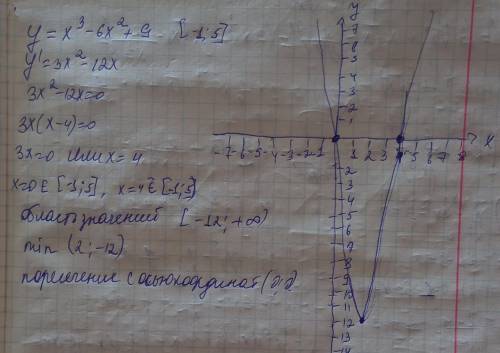 y = x³ - 6x² + 9 [-1; 5]
y' = 3x² - 12x
3x² - 12x = 0
3x(x - 4) = 0
3x = 0 или x = 4
x = 0 ∈ [-1; 5], x = 4 ∈ [-1; 5]
область значений [-12; +∞)
min (2; -12)
пересечение с осью координат (0; 0)
y
7
6
5
4
3
2
1
-7 -6 -5 -4 -3 -2 -1 1 2 3 4 5 6 7 8 x
2
3
4
5
6
7
8
9
10
11
12
13
14